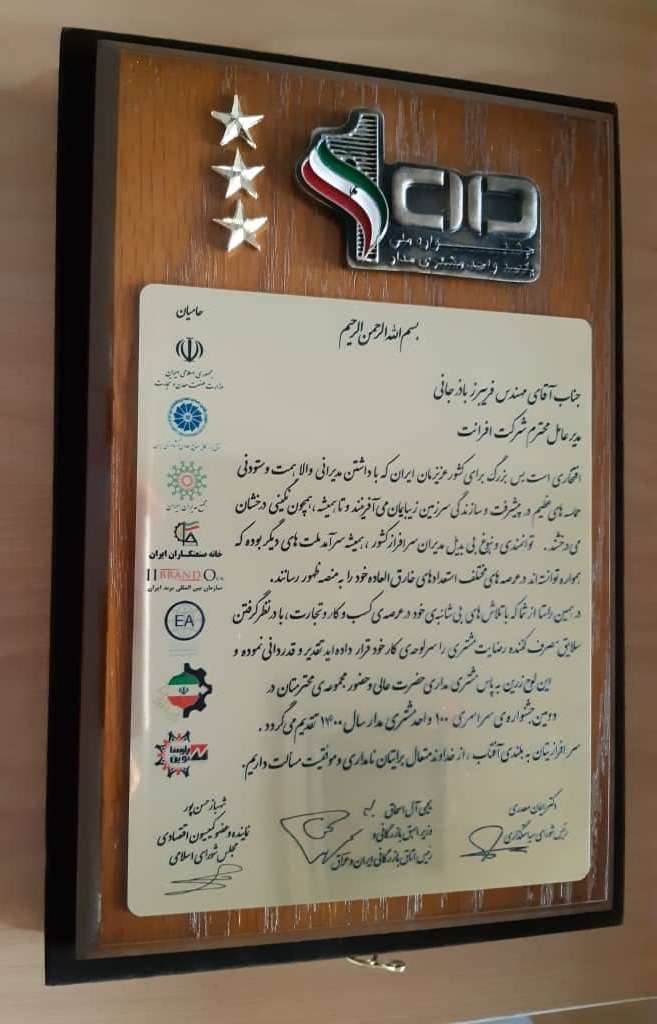 100
جشنواره ملی
یکصد واحد مشتری مدار
حامیان
جمهوری اسلامی ایران
وزارت صنعت معدن و تجارت
مجمع مدیران ایران
خانه صنعتگران ایران
BRAND
سازمان بین المللی برند ایران
EA
پارسا
نوین
بسم الله الرحمن الرحیم
جناب آقای مهندس فریبرز باذرجانی
مدیر عامل محترم شرکت افرانت
افتخاری است بس بزرگ برای کشور عزیزمان ایران که با داشتن مدیرانی والا همت و ستودنی
حماسه های عظیم در پیشرفت و سازندگی سرزمین زیبایمان می آفرینند و تا همیشه ، همچون نگینی درخشان
می درخشند . توانمندی و نبوغ بی بدیل مدیران سرافراز کشور ، همیشه سرآمد ملت های دیگر بوده که
همواره توانسته اند در عرصه های مختلف استعدادهای خارق العاده خود را به منصه ظهور رسانند.
در همین راستا از شما که با تلاش های بی شائبه ی خود در عرصه ی کسب و کار و تجارت ، با در نظر گرفتن
سلایق مصرف کننده رضایت مشتری را سرلوحه ی کار خود قرار داده اید تقدیر و قدردانی نموده و
این لوح زرین به پاس مشتری مداری حضرت عالی و حضور مجموعه ی محترمتان در
دومین جشنواره ی سراسری ۱۰۰ واحد مشتری مدار سال ۱۴۰۰ تقدیم می گردد .
سرافرازیتان به بلندی آفتاب ، از خداوند متعال برایتان نامداری و موفقیت مسألت داریم.
رئیس شورای سیاستگذاری
یحیی آل اسحاق
وزیر اسبق بازرگانی و
رئیس اتاق بازرگانی ایران و عراق
شهباز حسن پور
نماینده و عضو کمیسیون اقتصادی
مجلس شورای اسلامی